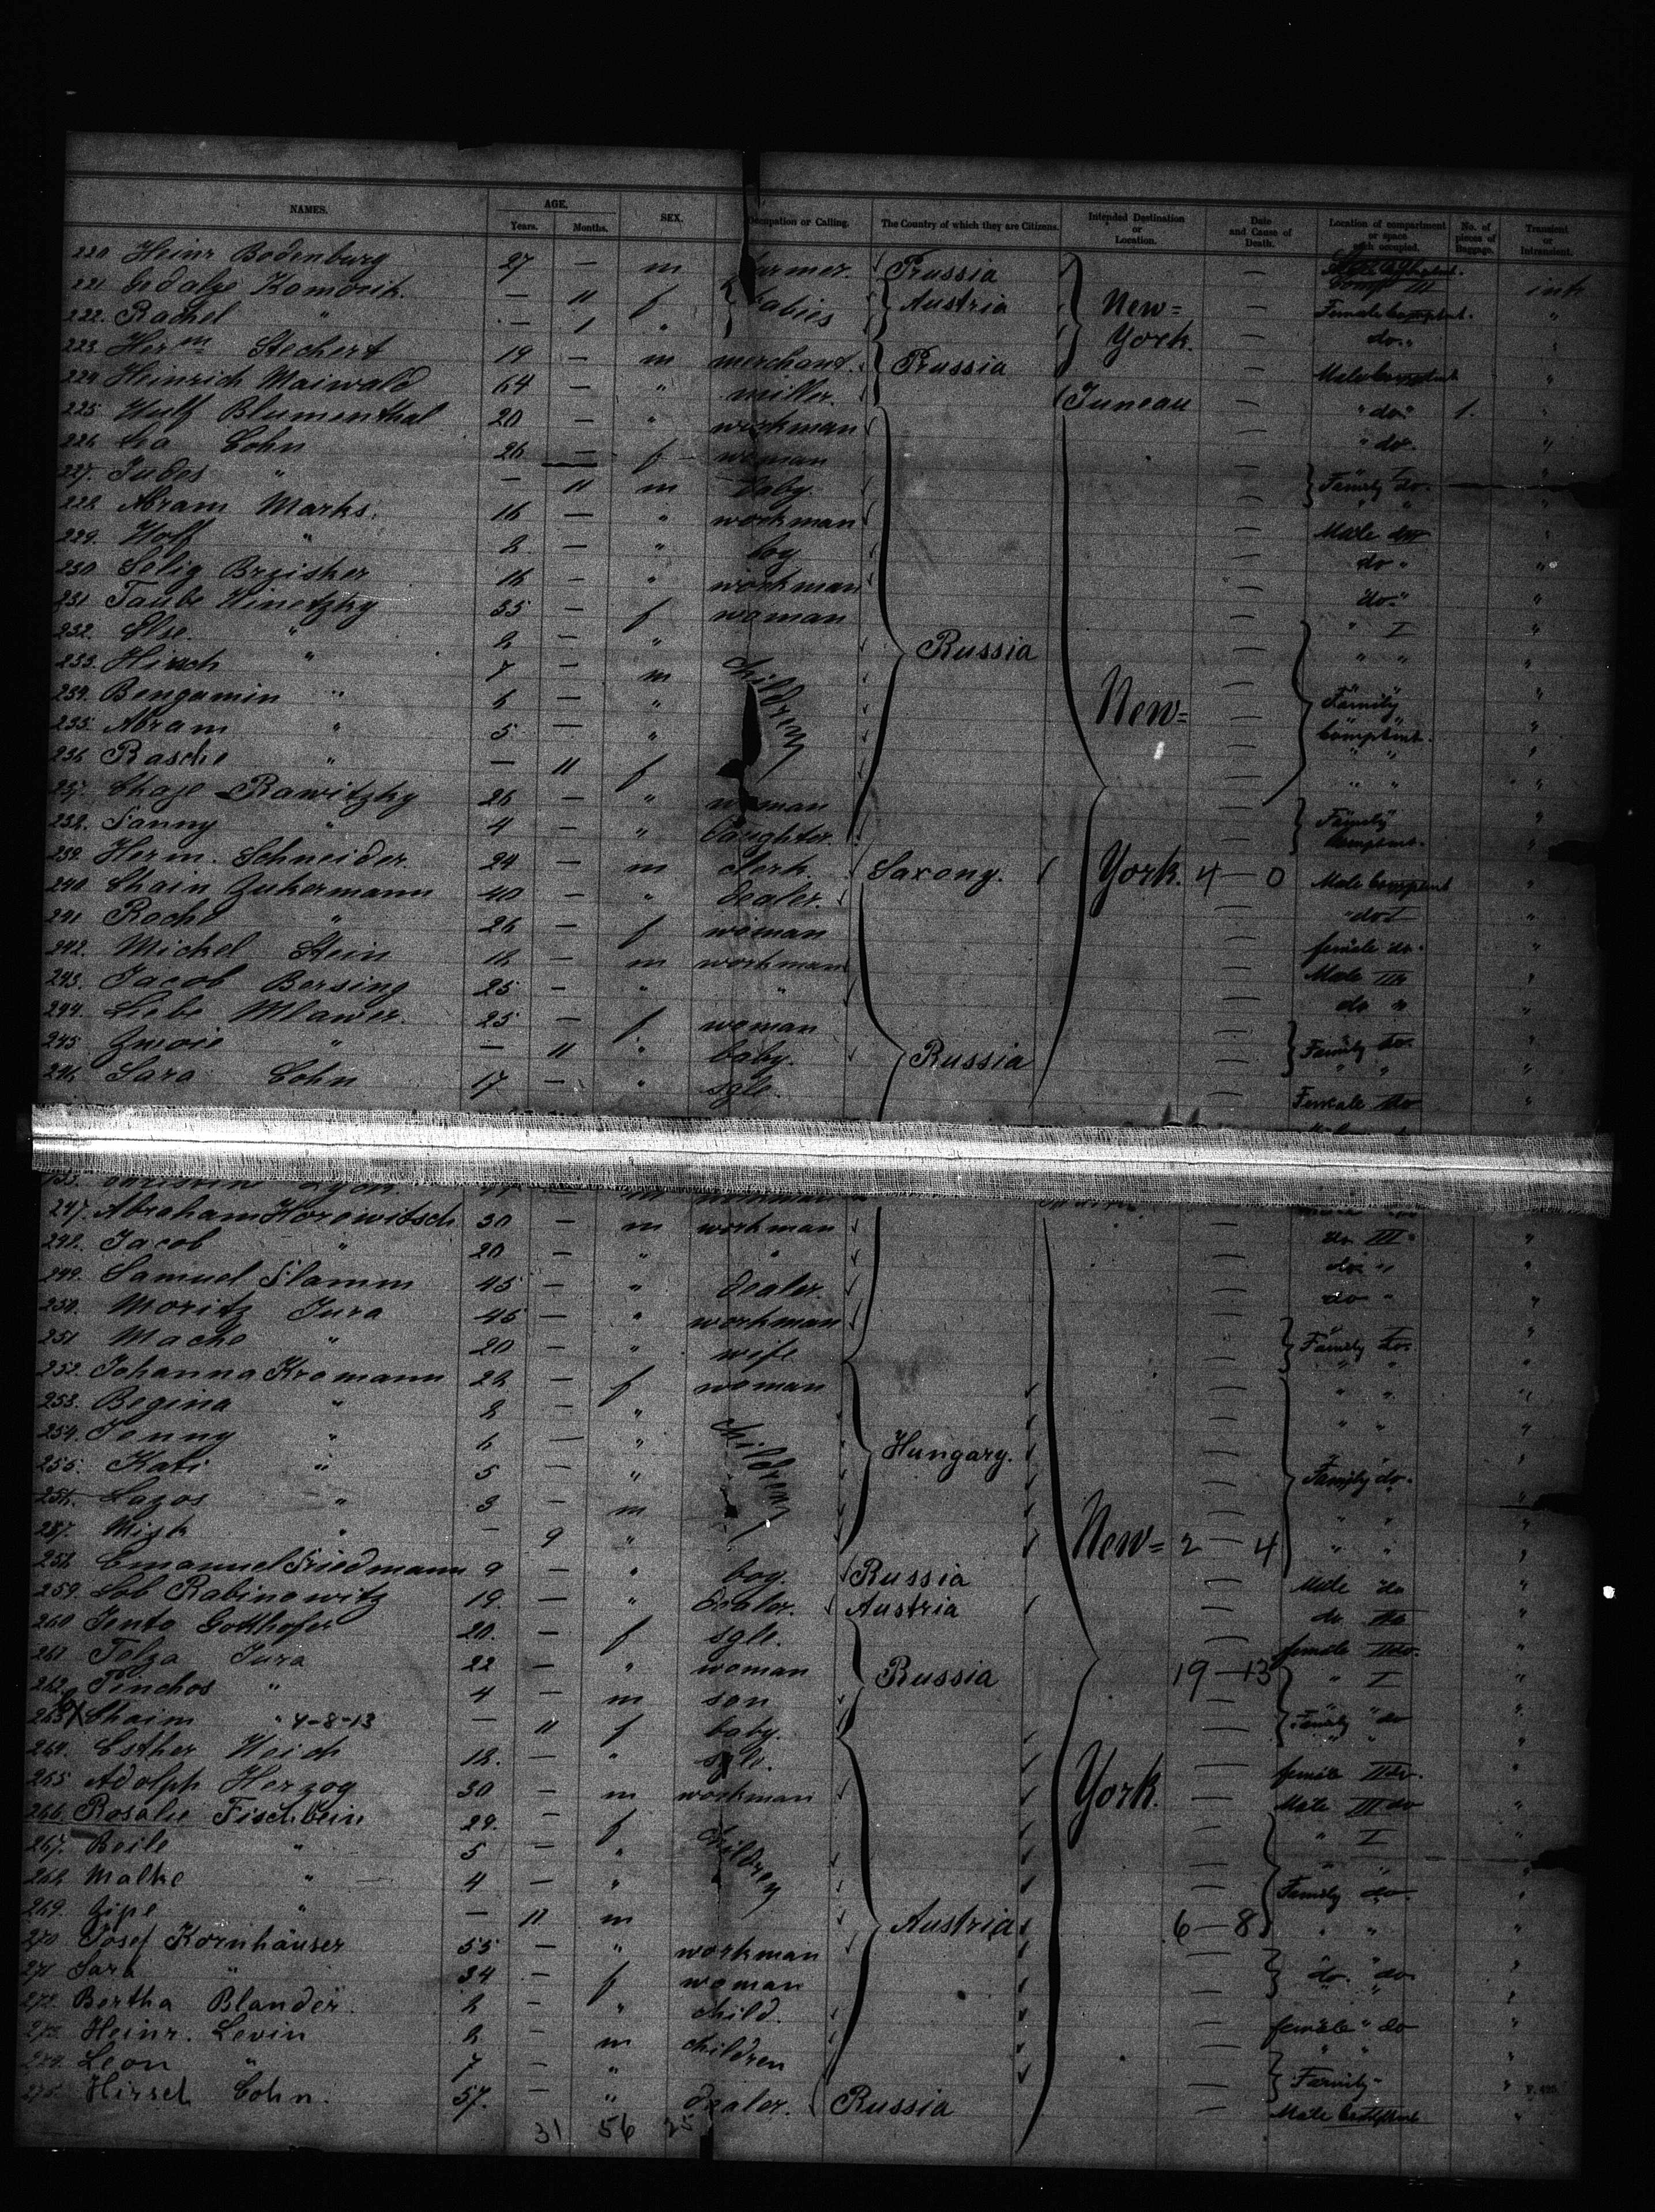 NAMES. AGE. Years. Months. SEX. Occupation or Calling. The Country of which they are Citizens. Intended Destination or Location. Date and Cause of Death. Location of compartment or space occupied. No. of pieces of Baggage. Transient or Intransient.
220 Heinr Bodenburg 27 — m farmer. Prussia —
221 Gedalge Komorik — 11 f babies Austria New= — Female Comptmt. "
222. Rachel " — 1 " York. — do. "
223. Herm Stechert 19 — m merchant. Prussia — Male "
224 Heinrich Maiwald 64 — " miller. Juneau — "do." 1. "
225. Wulf Blumenthal 20 — " workman — "do. "
226. Lea Cohn 26 — f woman — Family do. "
227. Judes " — 11 m baby. — " "
228. Abram Marks. 16 — " workman — Male do "
229. Wolf " 8 — " boy — do " "
230 Selig Breisker 16 — " workman — "do." "
231 Taube Winetzky 35 — f woman — " I "
232. Else " 8 — " Russia — " " "
233. Hirsch " 7 — m children — "
234. Bengamin " 6 — " New= — Family "
235. Abram " 5 — " — Comptmt. "
236. Rasche " — 11 f — " " "
237. Chaje Rawitzky 26 — " woman — Family "
238. Fanny " 4 — " daughter. — Comptmt. "
239. Herm. Schneider. 24 — m clerk. Saxony. York. 4 — 0 Male Comptmt "
240. Chain Zukermann 40 — " dealer. — "do I "
241 Rochl " 26 — f woman — female do. "
242. Michel Stein 18 — m workman — Male III "
243. Jacob Bersing 25 — " " — do " "
244. Liebe Mlawer. 25 — f woman — Family do. "
245. " — 11 " baby. Russia — " " "
246. Sara Cohn 17 — " sgle. — Female do "
247. Abraham Horowitsch 30 — m workman — do III "
248. Jacob " 20 — " " — do " "
249. Samuel Flamm 45 — " dealer. — do " "
250. Moritz Jura 46 — " workman — Family do. "
251 Mache " 20 — " wife — " " "
252. Johanna Kromann 28 — f woman — " " "
253. Begina " 8 — " — " " "
254. Jenny " 6 — " children Hungary. — "
255. Kati " 5 — " — Family do. "
256. Lazos " 3 — m — " " "
257. " — 9 " New= 2 — 4 " " "
258. Emanuel Friedmann 9 — " boy. Russia — Male do "
259. Lob Rabinowitz 19. — " dealer. Austria — do "
260 Jento Gotthofer 20. — f sgle. — female do. "
261 Tolza Jura 22 — " woman Russia 19 — 13 " I "
262. Pinchos " 4 — m son — Family do "
263 Chaim " 4-8-13 — 11 f baby. — "
264. Esther Weich 18. — " sgle. — female II do. "
265 Adolph Herzog 30 — m workman York. — Male III do "
266. Rosalie Fischbein 29. — f — " I "
267. Beile " 5 — " children — " " "
268 Malke " 4 — " — Family do. "
269. Zipe " — 11 m Austria 6 — 8 " " "
270 Josef Kornhäuser 55 — " workman — do. do. "
271 Sara " 34 — f woman — "
272. Bertha Blander. 8 — " child. — female " do "
273. Heinr. Levin 8 — m children — " " "
274. Leon " 7 — " — Family "
275. Hirsch Cohn. 57. — " dealer. Russia — Male "
31 56 25